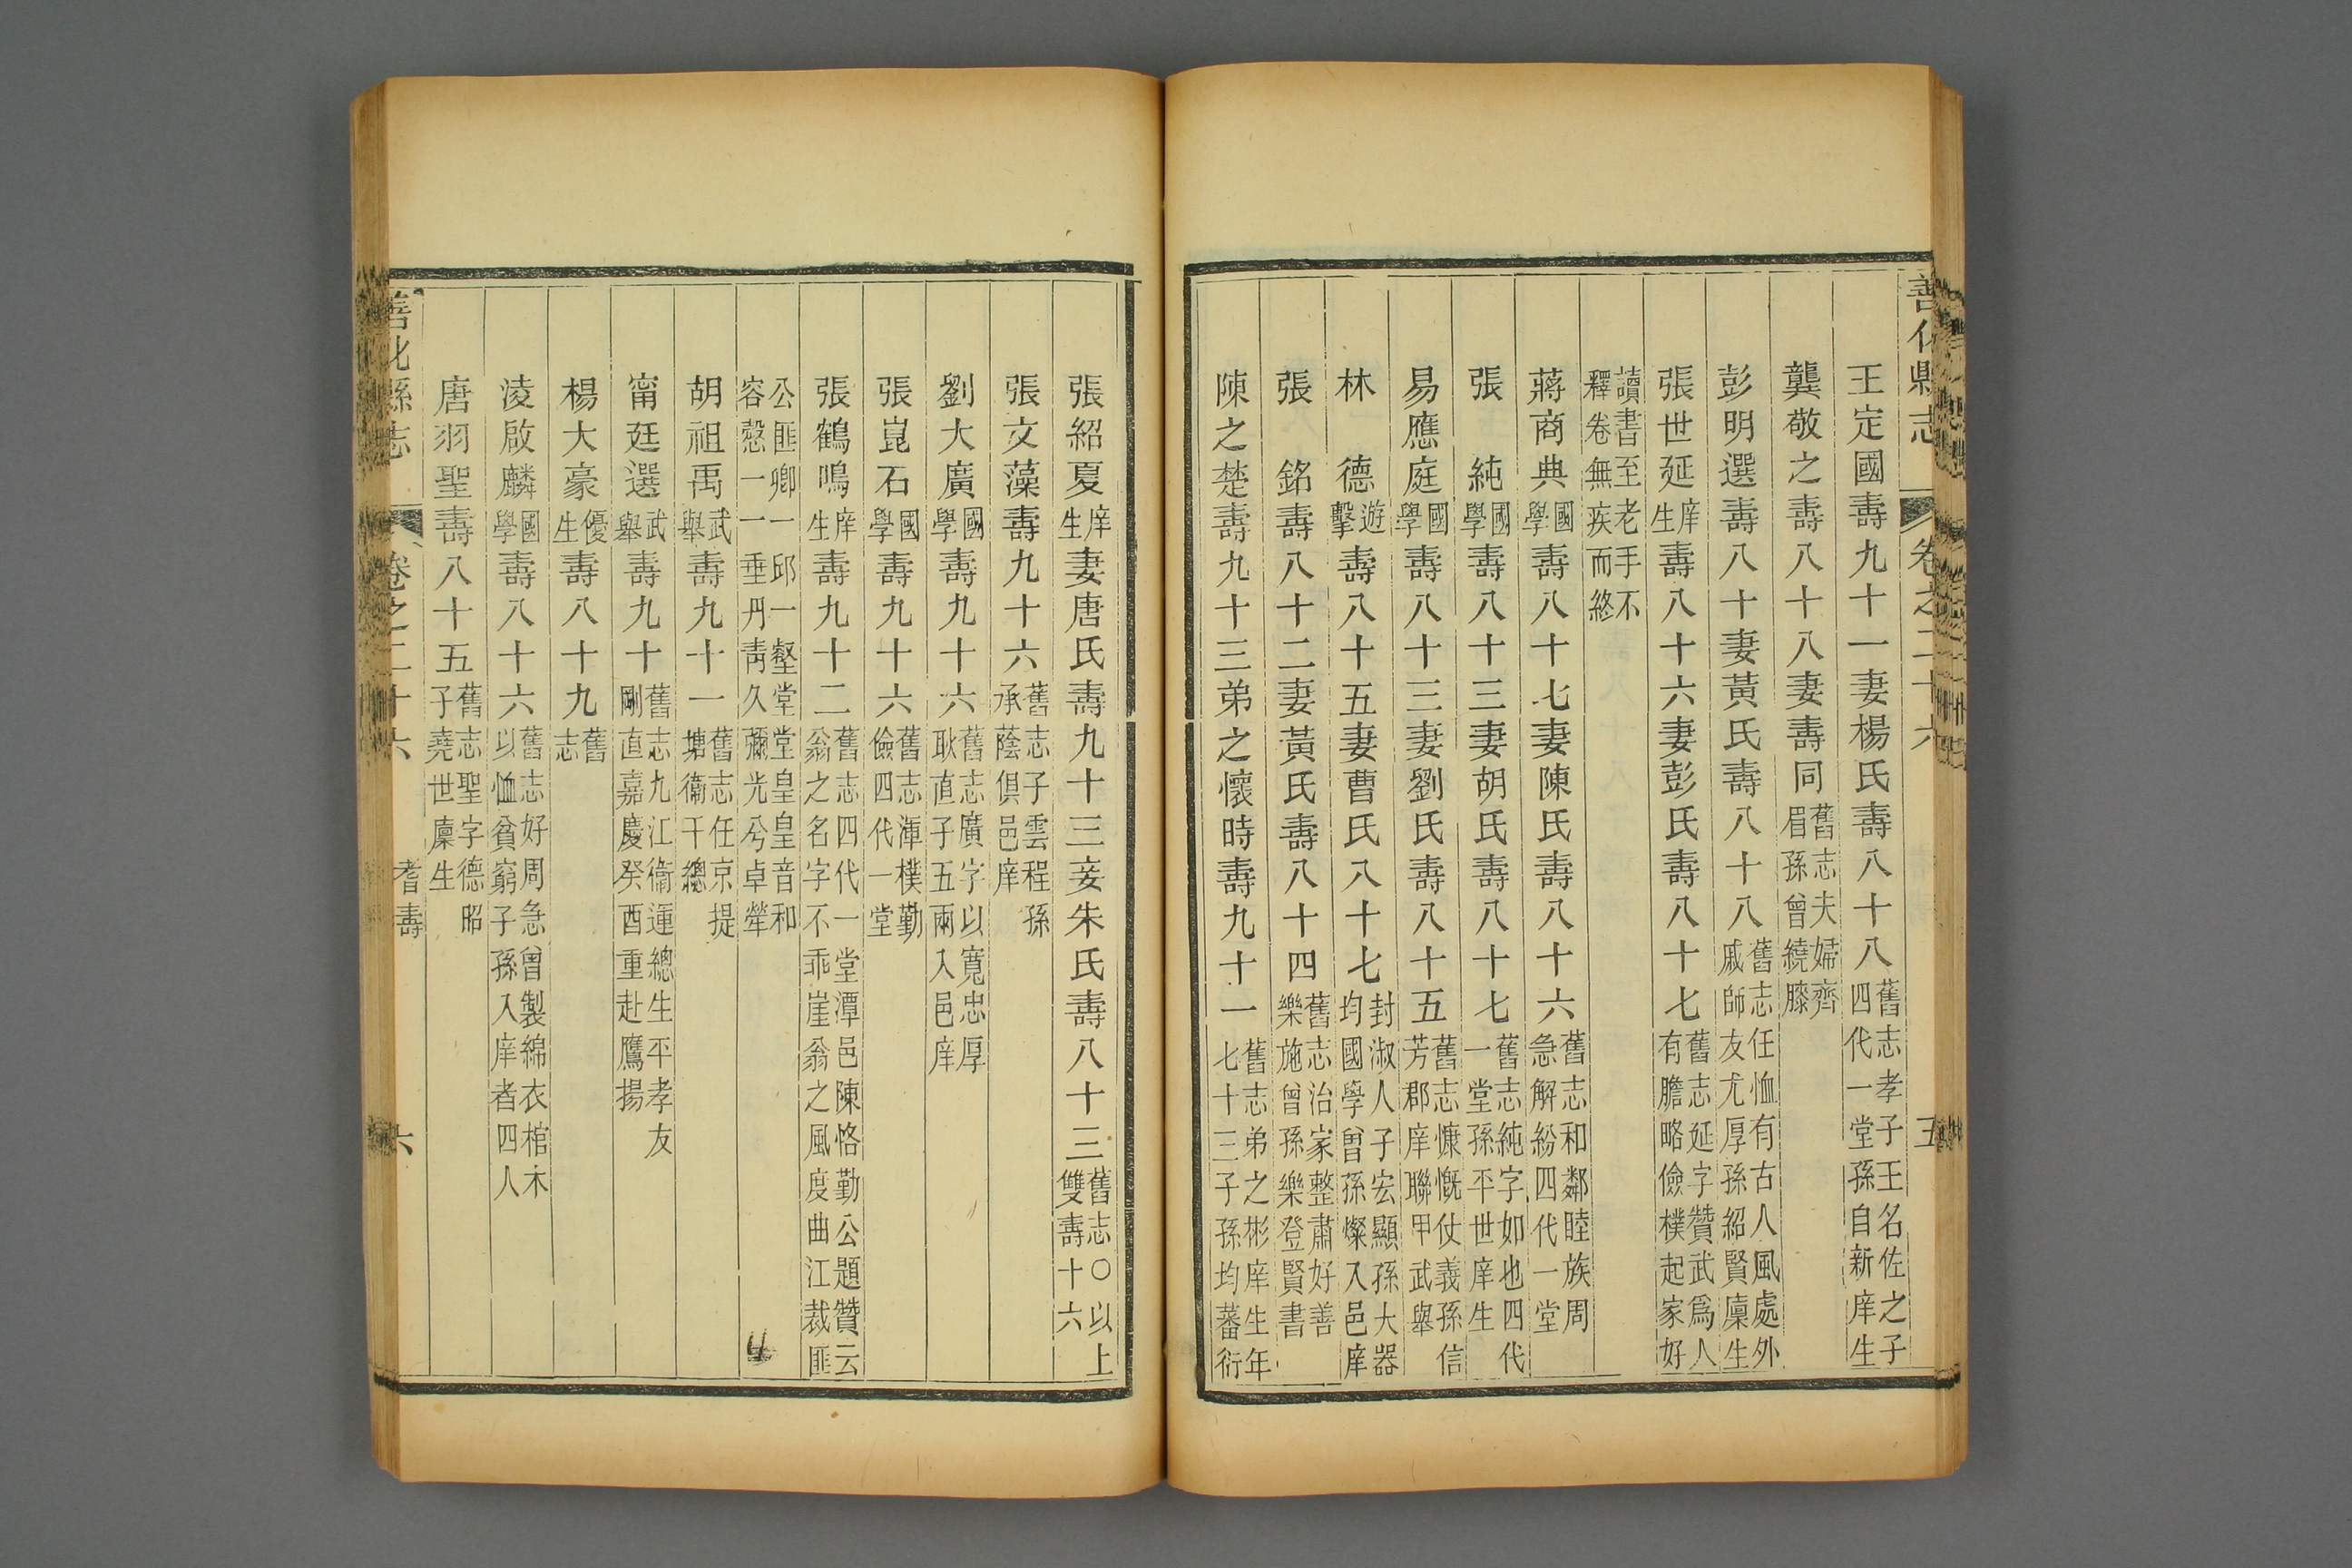 善化縣志 卷之二十六 五
王定國壽九十一妻楊氏壽八十八舊志孝子王名佐之子四代一堂孫自新庠生
龔敬之壽八十八妻壽同舊志夫婦齊眉孫曾繞膝
彭明選壽八十妻黃氏壽八十八舊志任恤有古人風處外戚師友尤厚孫紹賢廩生
張世延庠生壽八十六妻彭氏壽八十七舊志延字贊武爲人有膽略儉樸起家好
讀書至老手不釋卷無疾而終
蔣商典國學壽八十七妻陳氏壽八十六舊志和鄰睦族周急解紛四代一堂
張純國學壽八十三妻胡氏壽八十七舊志純字如也四代一堂孫平世庠生
易應庭國學壽八十三妻劉氏壽八十五舊志慷慨仗義孫信芳郡庠聯甲武舉
林德遊擊壽八十五妻曹氏八十七封淑人子宏顯孫大器均國學曾孫燦入邑庠
張銘壽八十二妻黃氏壽八十四舊志治家整肅好善樂施曾孫樂登賢書
陳之楚壽九十三弟之懷時壽九十一舊志弟之彬庠生年七十三子孫均蕃衍
張紹夏庠生妻唐氏壽九十三妾朱氏壽八十三舊志〇以上雙壽十六
張文藻壽九十六舊志子雲程孫承蔭俱邑庠
劉大廣國學壽九十六舊志廣字以寬忠厚耿直子五兩入邑庠
張崑石國學壽九十六舊志渾樸勤儉四代一堂
張鶴鳴庠生壽九十二舊志四代一堂潭邑陳恪勤公題贊云翁之名字不乖崖翁之風度曲江裁匪
公匪卿一邱一壑堂堂皇皇音和容愨一一垂丹靑久彌光兮卓犖
胡祖禹武舉壽九十一舊志任京提塘衛千總
甯廷選武舉壽九十舊志九江衛運總生平孝友剛直嘉慶癸酉重赴鷹揚
楊大豪優生壽八十九舊志
淩啟麟國學壽八十六舊志好周急曾製綿衣棺木以恤貧窮子孫入庠者四人
唐羽聖壽八十五舊志聖字德昭子堯世廩生
善化縣志 卷之二十六 耆壽 六